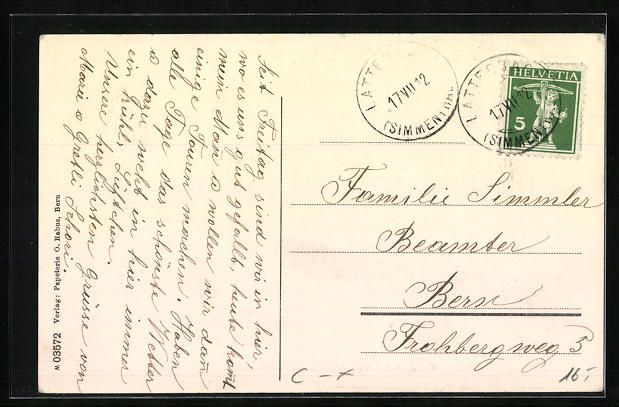 Seit Freitag sind wir in hier,
wo es uns gut gefällt, heute komt
mein Man u wollen wir dann
einige Touren machen. Haben
alle Tage das schönste Wetter
u dazu weht in hier immer
ein kühl. Lüftchen.
Unsere herzlichsten Grüsse von
Marie u Gretli
Verlag: Papeterie O. Rabus, Bern
03572
17 VII 12
(SIMMENTHAL)
LATTERBACH
17 VII 12
(SIMMENTHAL)
HELVETIA
5
Familie Simmler
Beamter
Bern
Frohbergweg 5
C - x
16.-